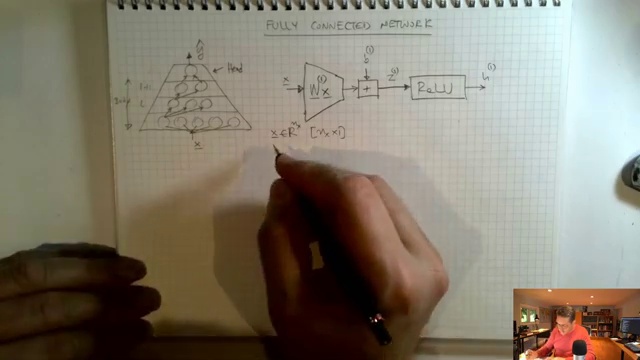 FULLY CONNECTED NETWORK
ŷ
Head
L
x
x
W⁽¹⁾x
b⁽¹⁾
+
z⁽¹⁾
ReLU
h⁽¹⁾
x ∈ ℝⁿˣ [nₓ×1]